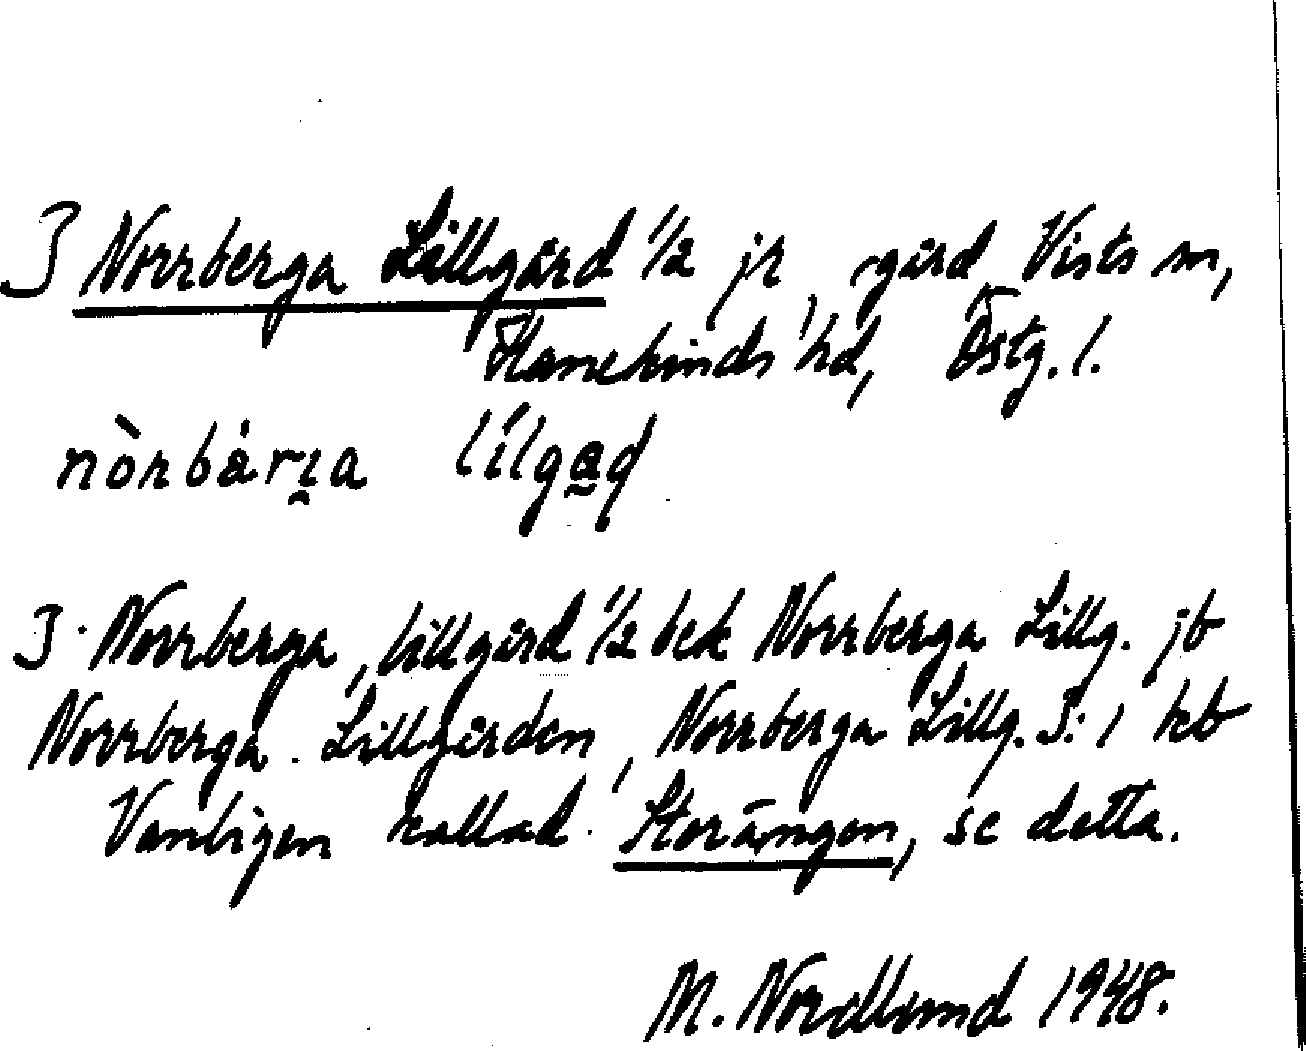 3 Norrberga Lillgård 1/2 jr, gård Vists sn,
Hanekinds hd, Östg. l.
nòrbár​ɪ̯a lílga̰d
3 Norrberga, lillgård 1/2 bek Norrberga Lillg. jb
Norrberga Lillgården, Norrberga Lillg. 3:1 kb
Vanligen kallad Storängen, se detta.
M. Nordlund 1948.